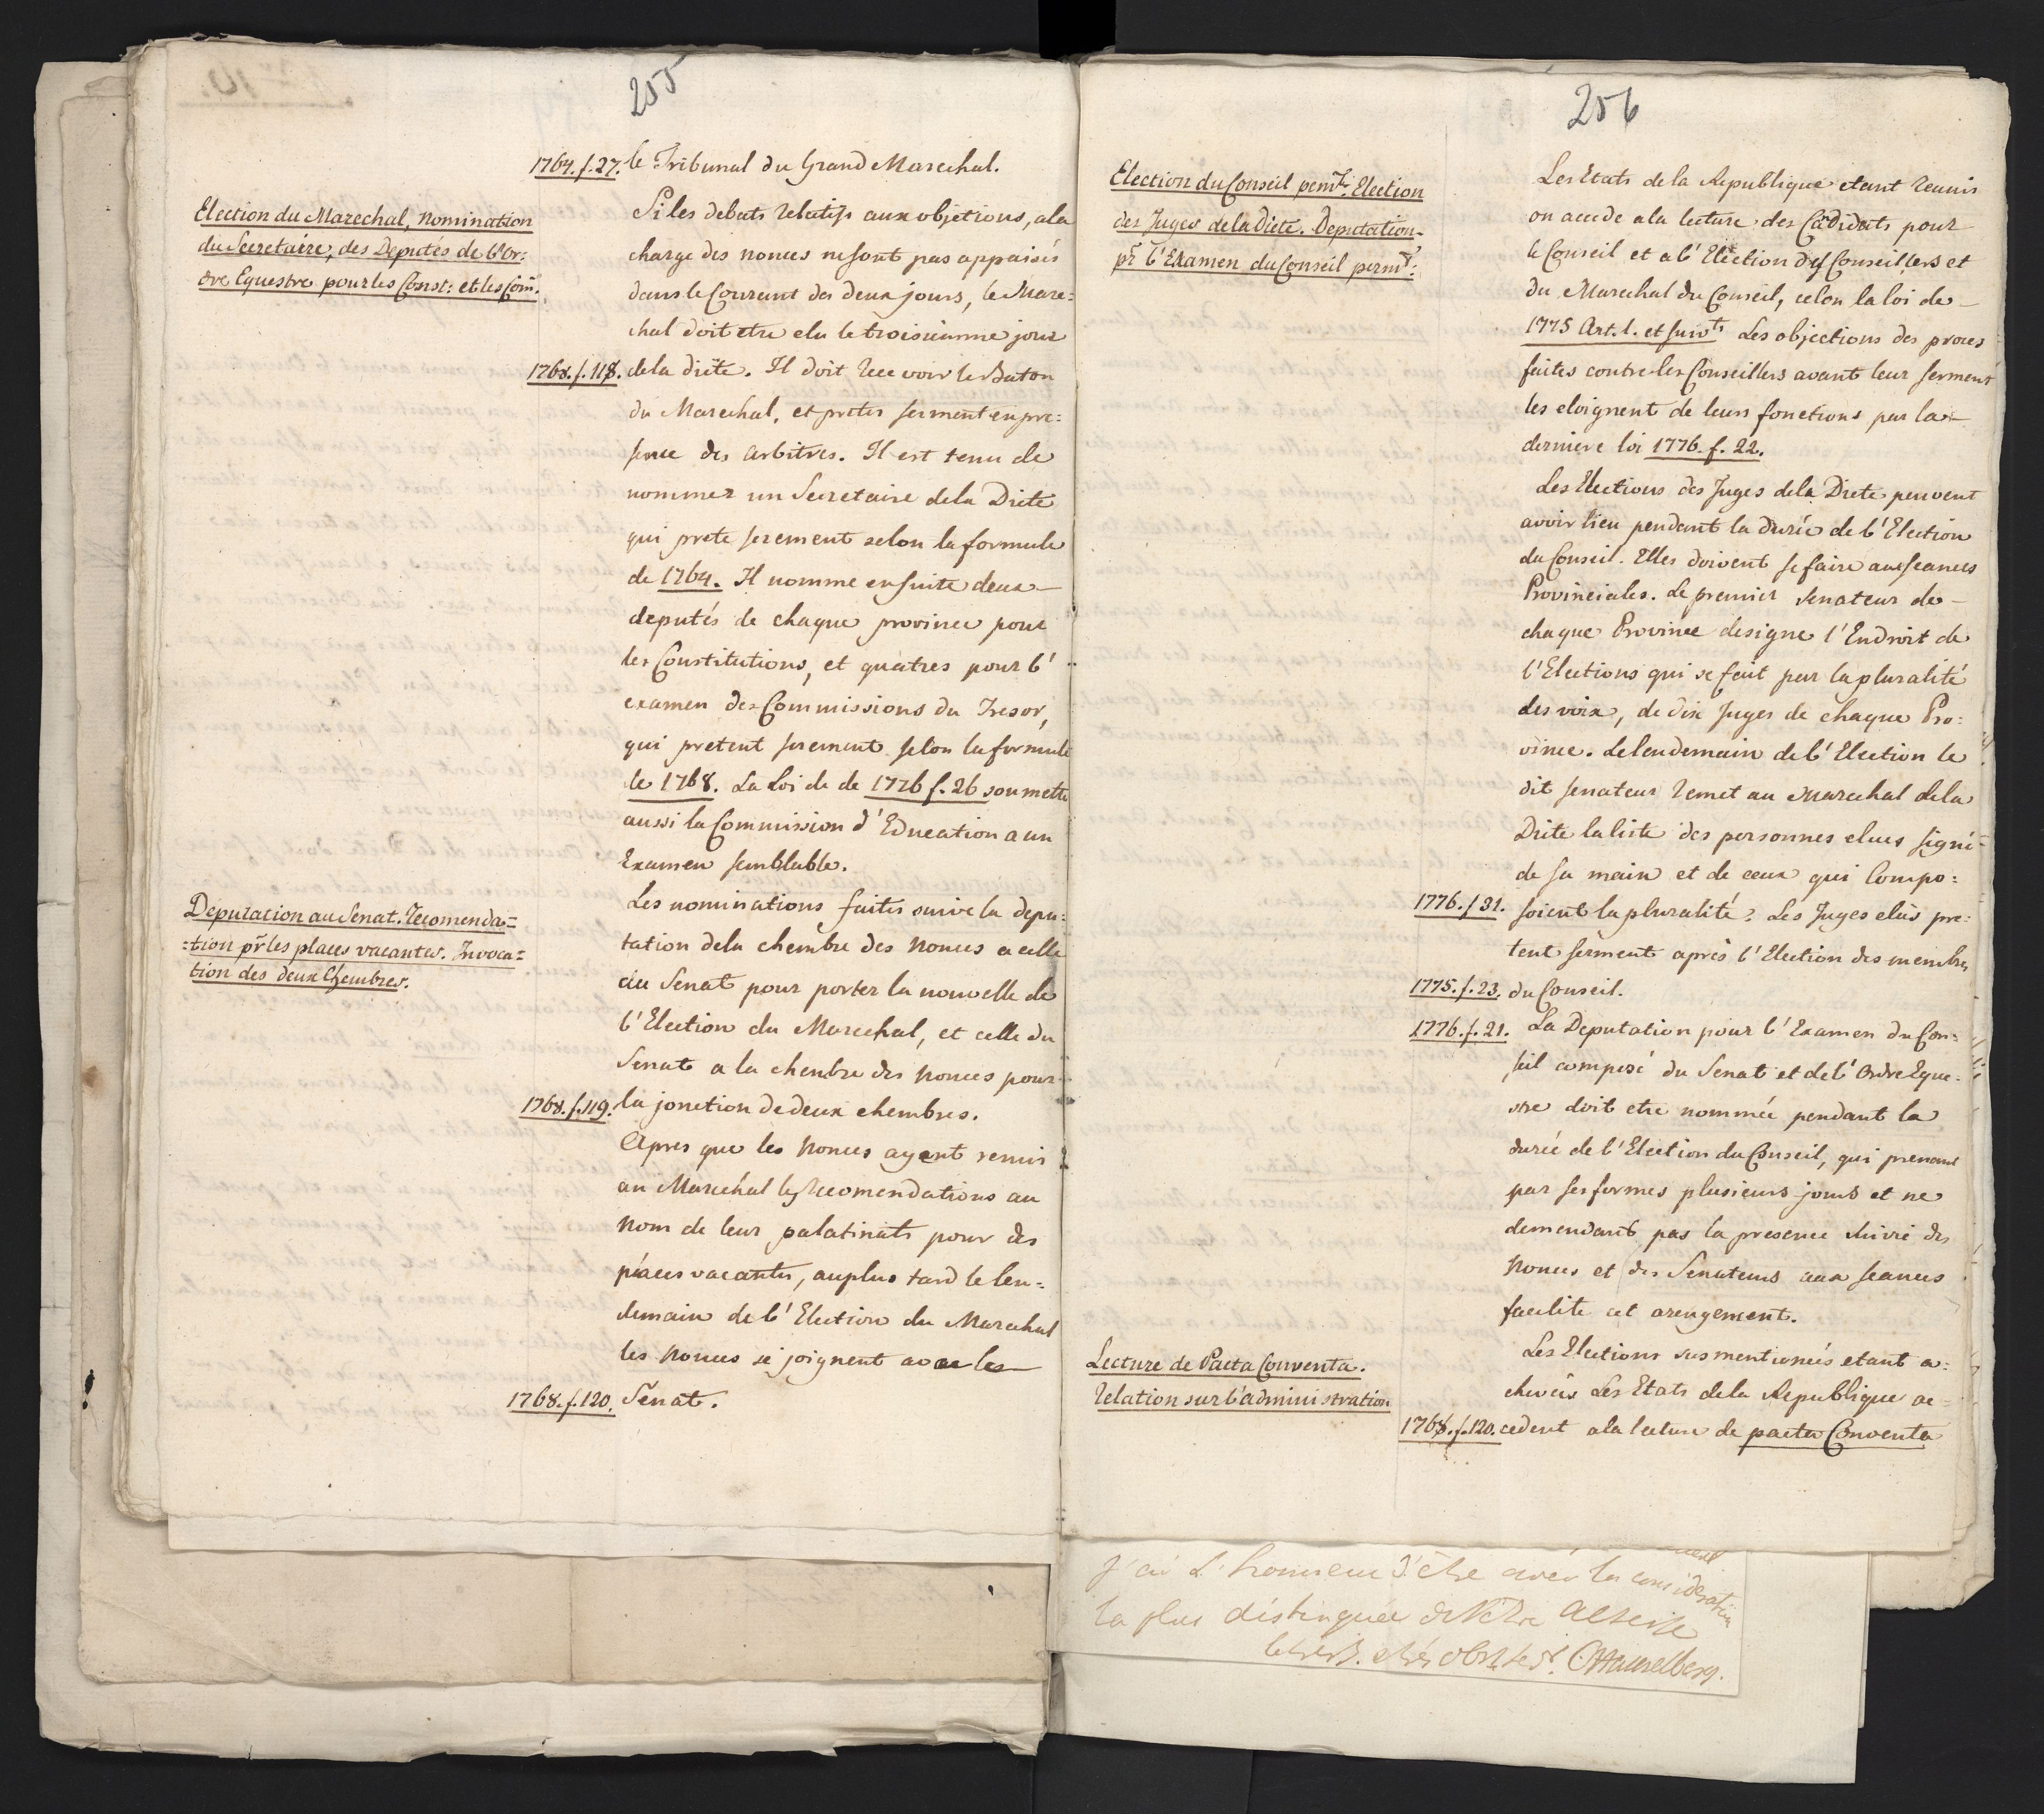 255
1764. f. 27. le Tribunal du Grand Marechal.
Election du Marechal, Nomination
du Secretaire, des Deputés de l'Or:
dre Equestre pour les Const: et les Com̃.
Si les debats relatifs aux objetions, a la
charge des nonces ne sont pas appaisés
dans le Courant des deux jours, le Mare:
chal doit etre elu le troisieme jour
1768. f. 118. de la diëte. Il doit recevoir le Baton
du Marechal, et preter serment en pre:
sence des arbitres. Il est tenu de
nommer un Secretaire de la Diete
qui prete serement selon la formule
de 1764. Il nomme ensuite deux
deputés de chaque province pour
les Constitutions, et quatres pour l'
examen des Commissions du Tresor,
qui pretent serement selon la formule
de 1768. La Loi de de 1776 f. 26 soumette
aussi la Commission d'Education a un
Examen semblable.
Deputation au Senat. Recomenda=
=tion pr̃ les places vacantes. Invoca=
tion des deux Chembres.
Les nominations faites suive la depu:
tation de la chembre des Nonces a celle
du Senat pour porter la nouvelle de
l'Election du Marechal, et celle du
Senat a la chembre des Nonces pour
1768. f. 119. la jonction de deux chembres.
Apres que les Nonces ayent remis
au Maréchal les recomendations au
Nom de leur palatinats pour des
places vacantes, au plus tard le len:
demain de l'Election du Marechal
les Nonces se joignent avec les
1768. f. 120. Sénat.
256
Election du Conseil permt. Election
des Juges de la Diete. Deputation
pr̃ l'Examen du Conseil permt:
Les Etats de la Republique etant reunis
on accede a la lecture des Cãdidats pour
le Conseil et a l'Election des Conseillers et
du Marechal du Conseil, selon la loi de
1775 Art. 1. et suivts Les objections des proces
faites contre les Conseillers avant leur serment
les eloignent de leurs fonctions par la
derniere loi 1776. f. 22.
Les Elections des Juges de la Diete peuvent
avoir lieu pendant la durée de l'Election
du Conseil. Elles doivent se faire aux seances
Provinciales. Le premier Senateur de
chaque Province designe l'Endroit de
l'Elections qui se fait par la pluralité
des voix, de dix Juges de chaque Pro:
vince. Le lendemain de l'Election le
dit senateur remet au Marechal de la
Diete la liste des personnes elues signé
de sa main et de ceux qui Compo:
1776. f. 31. soient la pluralité. Les Juges elus pre:
tent serment aprés l'Election des membres
1775. f. 23. du Conseil.
1776. f. 21. La Deputation pour l'Examen du Con:
seil composé du Senat et de l'Ordre Eque:
stre doit etre nommée pendant la
durée de l'Election du Conseil, qui prenant
par ses formes plusieurs jours et ne
demendant pas la presence suivie des
Nonces et des Senateurs aux seances
facilite cet arengement.
Lecture de Pacta Conventa.
Relation sur l'administration
Les Elections susmentionées etant a:
chevées Les Etats de la Republique ac
1768. f. 120. cedent a la lecture de pacta Conventa
j'ai l'honneur d'être avec la consideration
la plus distinguée de Votre Altesse